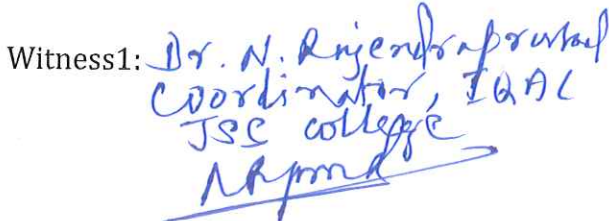 Witness1: Dr. N. Rajendraprasad
Coordinator, IQAC
JSC college